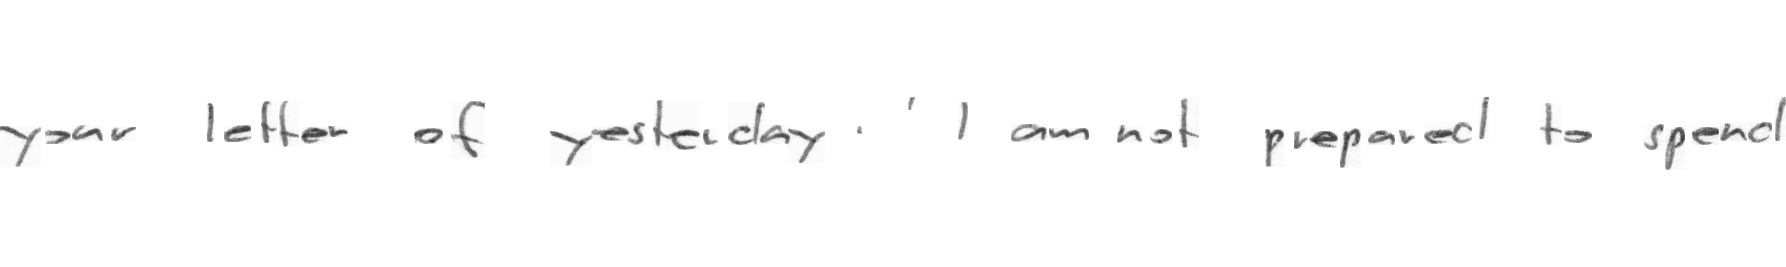 your letter of yesterday. ' I am not prepared to spend